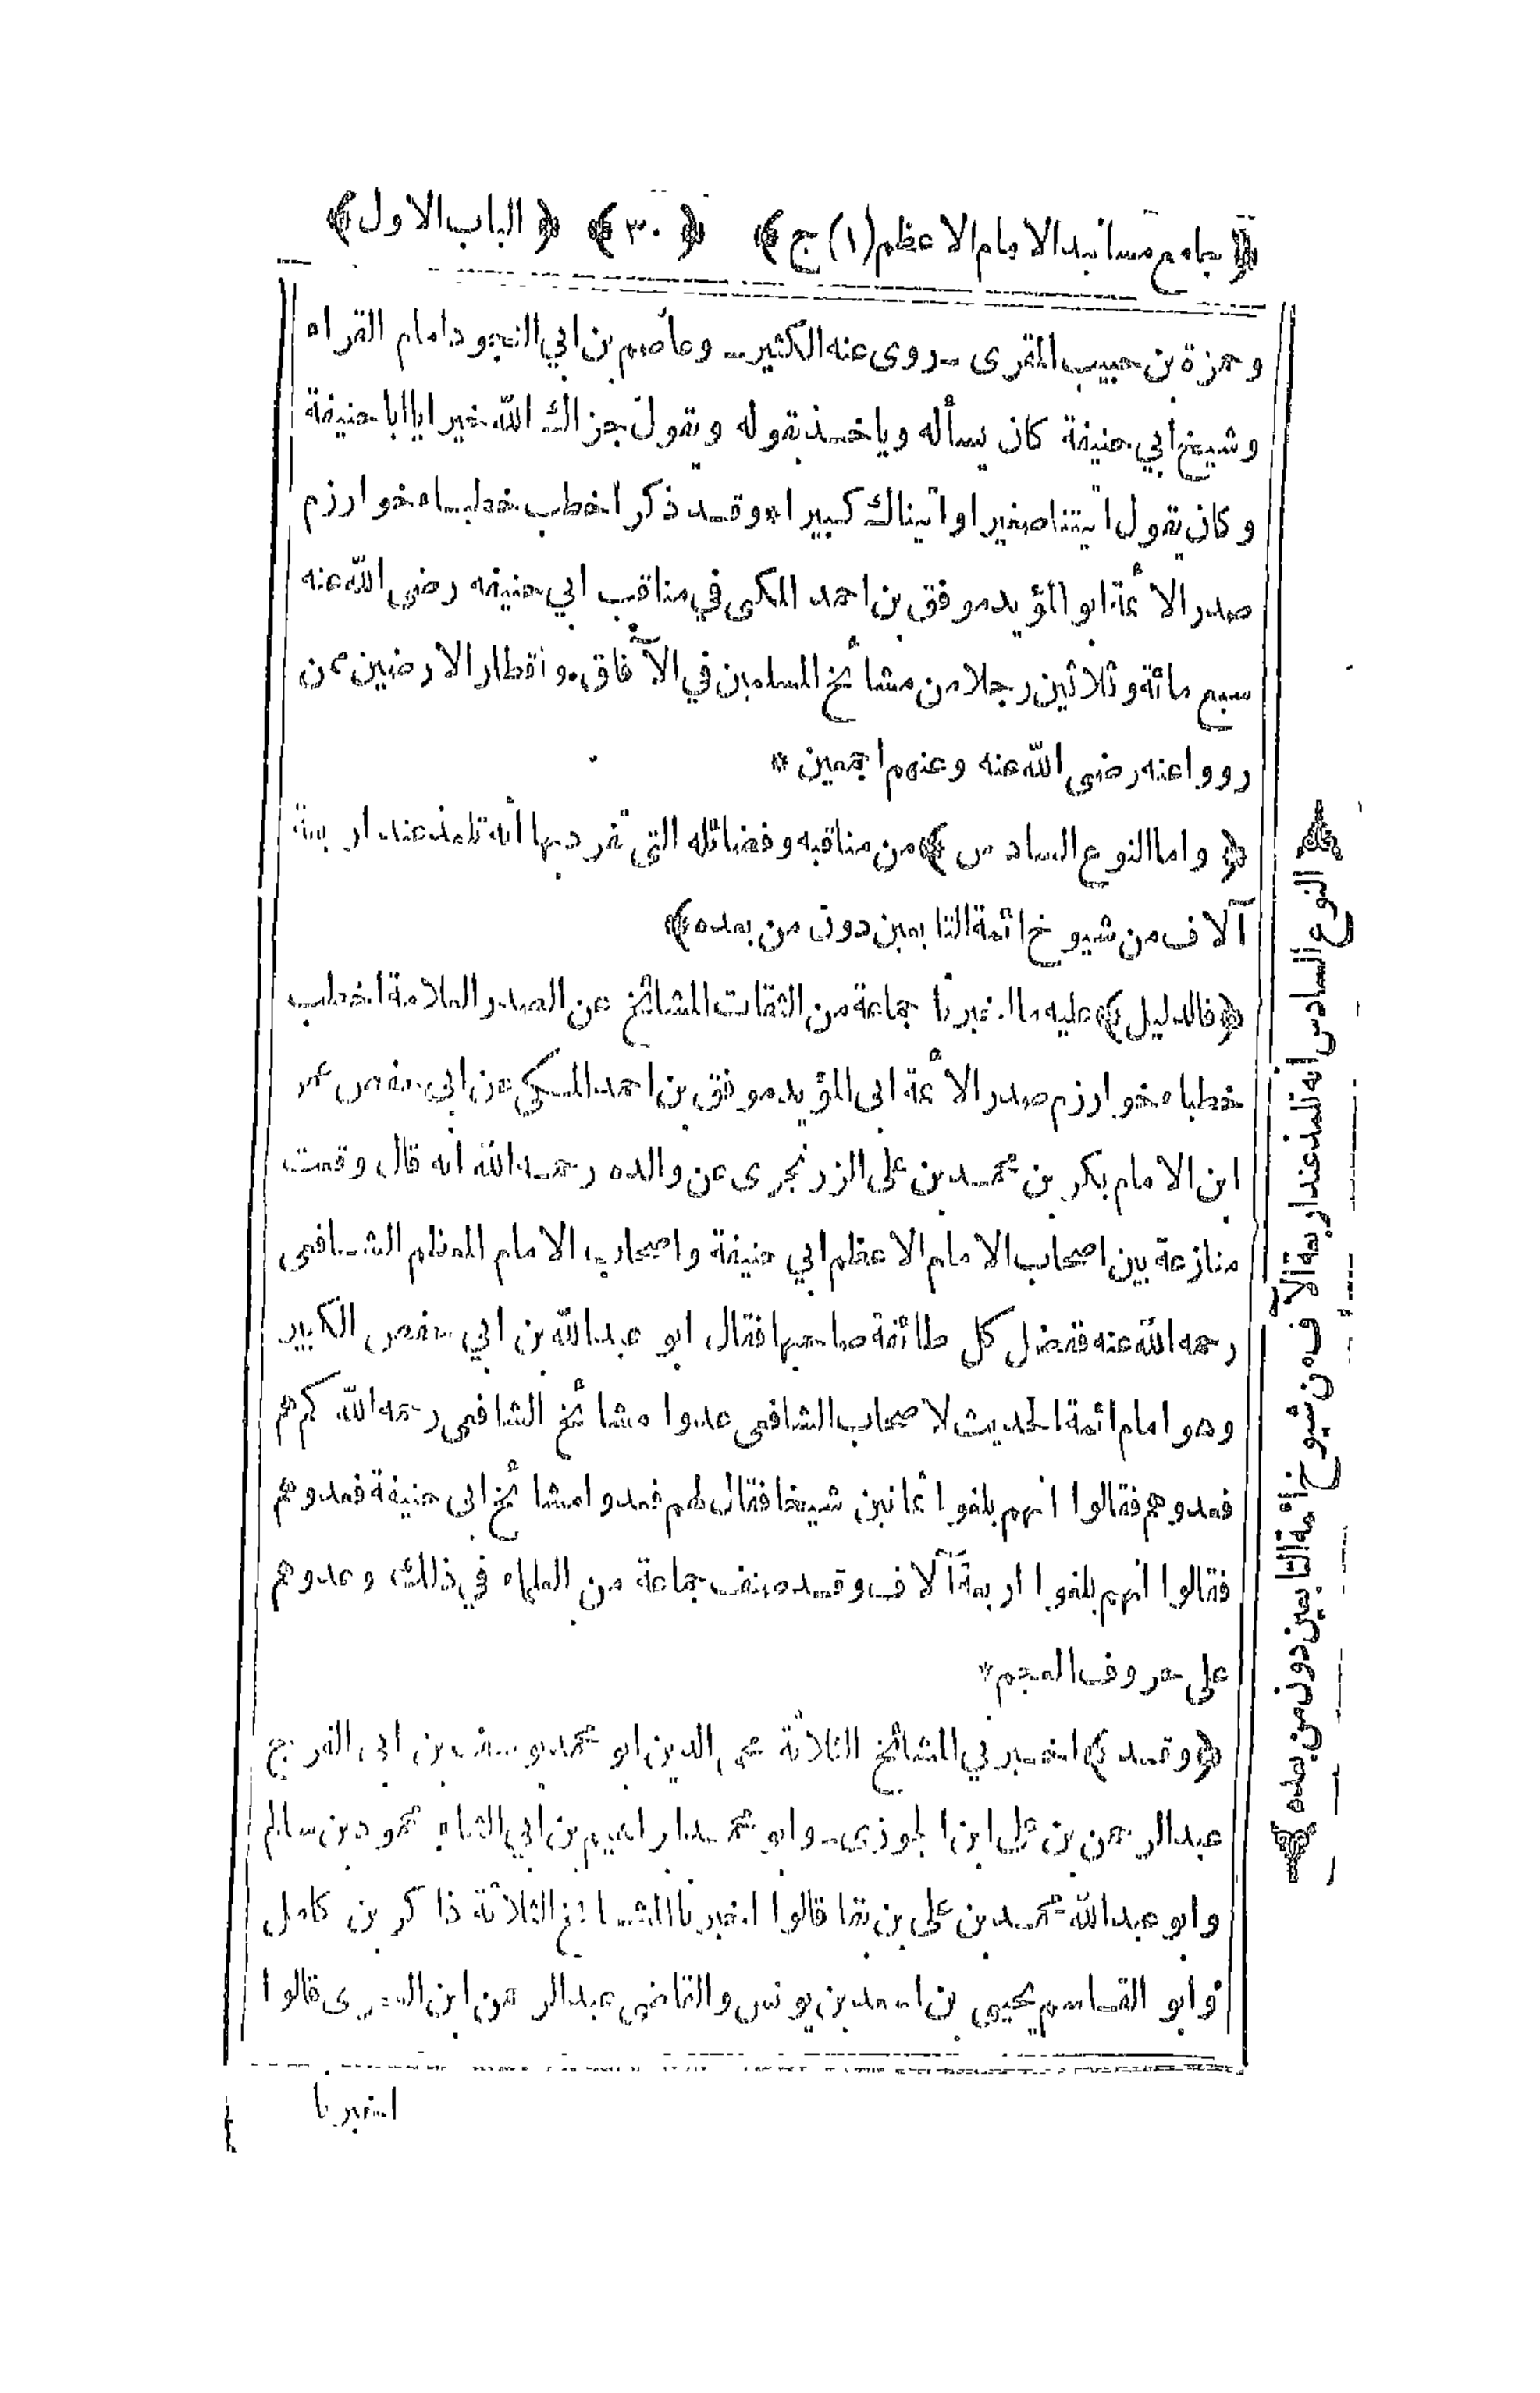 ﴿ جامع مسانيد الامام الاعظم (١) ج ﴾ ﴿ ٣٠ ﴾ ﴿ الباب الاول ﴾
وحمزة بن حبيب المقرى ـ روى عنه الكثير ـ وعاصم بن ابي النجود امام القراء
وشيخ ابي حنيفة كان يسأله وياخذ بقوله ويقول جزاك الله خيرا يا ابا حنيفة
وكان يقول اتيتنا صغيرا واتيناك كبيرا * وقد ذكر اخطب خطباء خوارزم
صدر الائمة ابو المؤيد موفق بن احمد المكى في مناقب ابي حنيفه رضى الله عنه
سبع مائة وثلاثين رجلا من مشائخ المسلمين في الآفاق * واقطار الارضين ممن
رووا عنه رضى الله عنه وعنهم اجمعين *
﴿ واما النوع السادس ﴾ من مناقبه وفضائله التى تفرد بها انه تلمذ عند اربعة
آلاف من شيوخ ائمة التابعين دون من بعده ﴾
﴿ فالدليل ﴾ عليه ما اخبرنا جماعة من الثقات المشائخ عن الصدر العلامة اخطب
خطباء خوارزم صدر الائمة ابى المؤيد موفق بن احمد المكى عن ابى حفص عمر
ابن الامام بكر بن محمد بن على الزرنجرى عن والده رحمه الله انه قال وقعت
منازعة بين اصحاب الامام الاعظم ابي حنيفة واصحاب الامام المعظم الشافعى
رحمه الله عنه ففضل كل طائفة صاحبها فقال ابو عبد الله بن ابي حفص الكبير
وهو امام ائمة الحديث لاصحاب الشافعى عدوا مشائخ الشافعى رحمه الله كم هم
فعدوهم فقالوا انهم بلغوا ثمانين شيخا فقال لهم فعدوا مشائخ ابى حنيفة فعدوهم
فقالوا انهم بلغوا اربعة آلاف وقد صنف جماعة من العلماء في ذلك وعدوهم
على حروف المعجم *
﴿ وقد ﴾ اخبرني المشائخ الثلاثة محى الدين ابو محمد يوسف بن ابى الفرج
عبد الرحمن بن على ابن الجوزى ـ وابو محمد ابراهيم بن ابي الثناء محمود بن سالم
وابو عبد الله محمد بن على بن بقا قالوا اخبرنا المشائخ الثلاثة ذاكر بن كامل
وابو القاسم يحيى بن اسعد بن يونس والقاضى عبد الرحمن ابن قالوا
اخبرنا
النوع السادس انه تلمذ عند اربعة آلاف من شيوخ ائمة التابعين دون من بعده